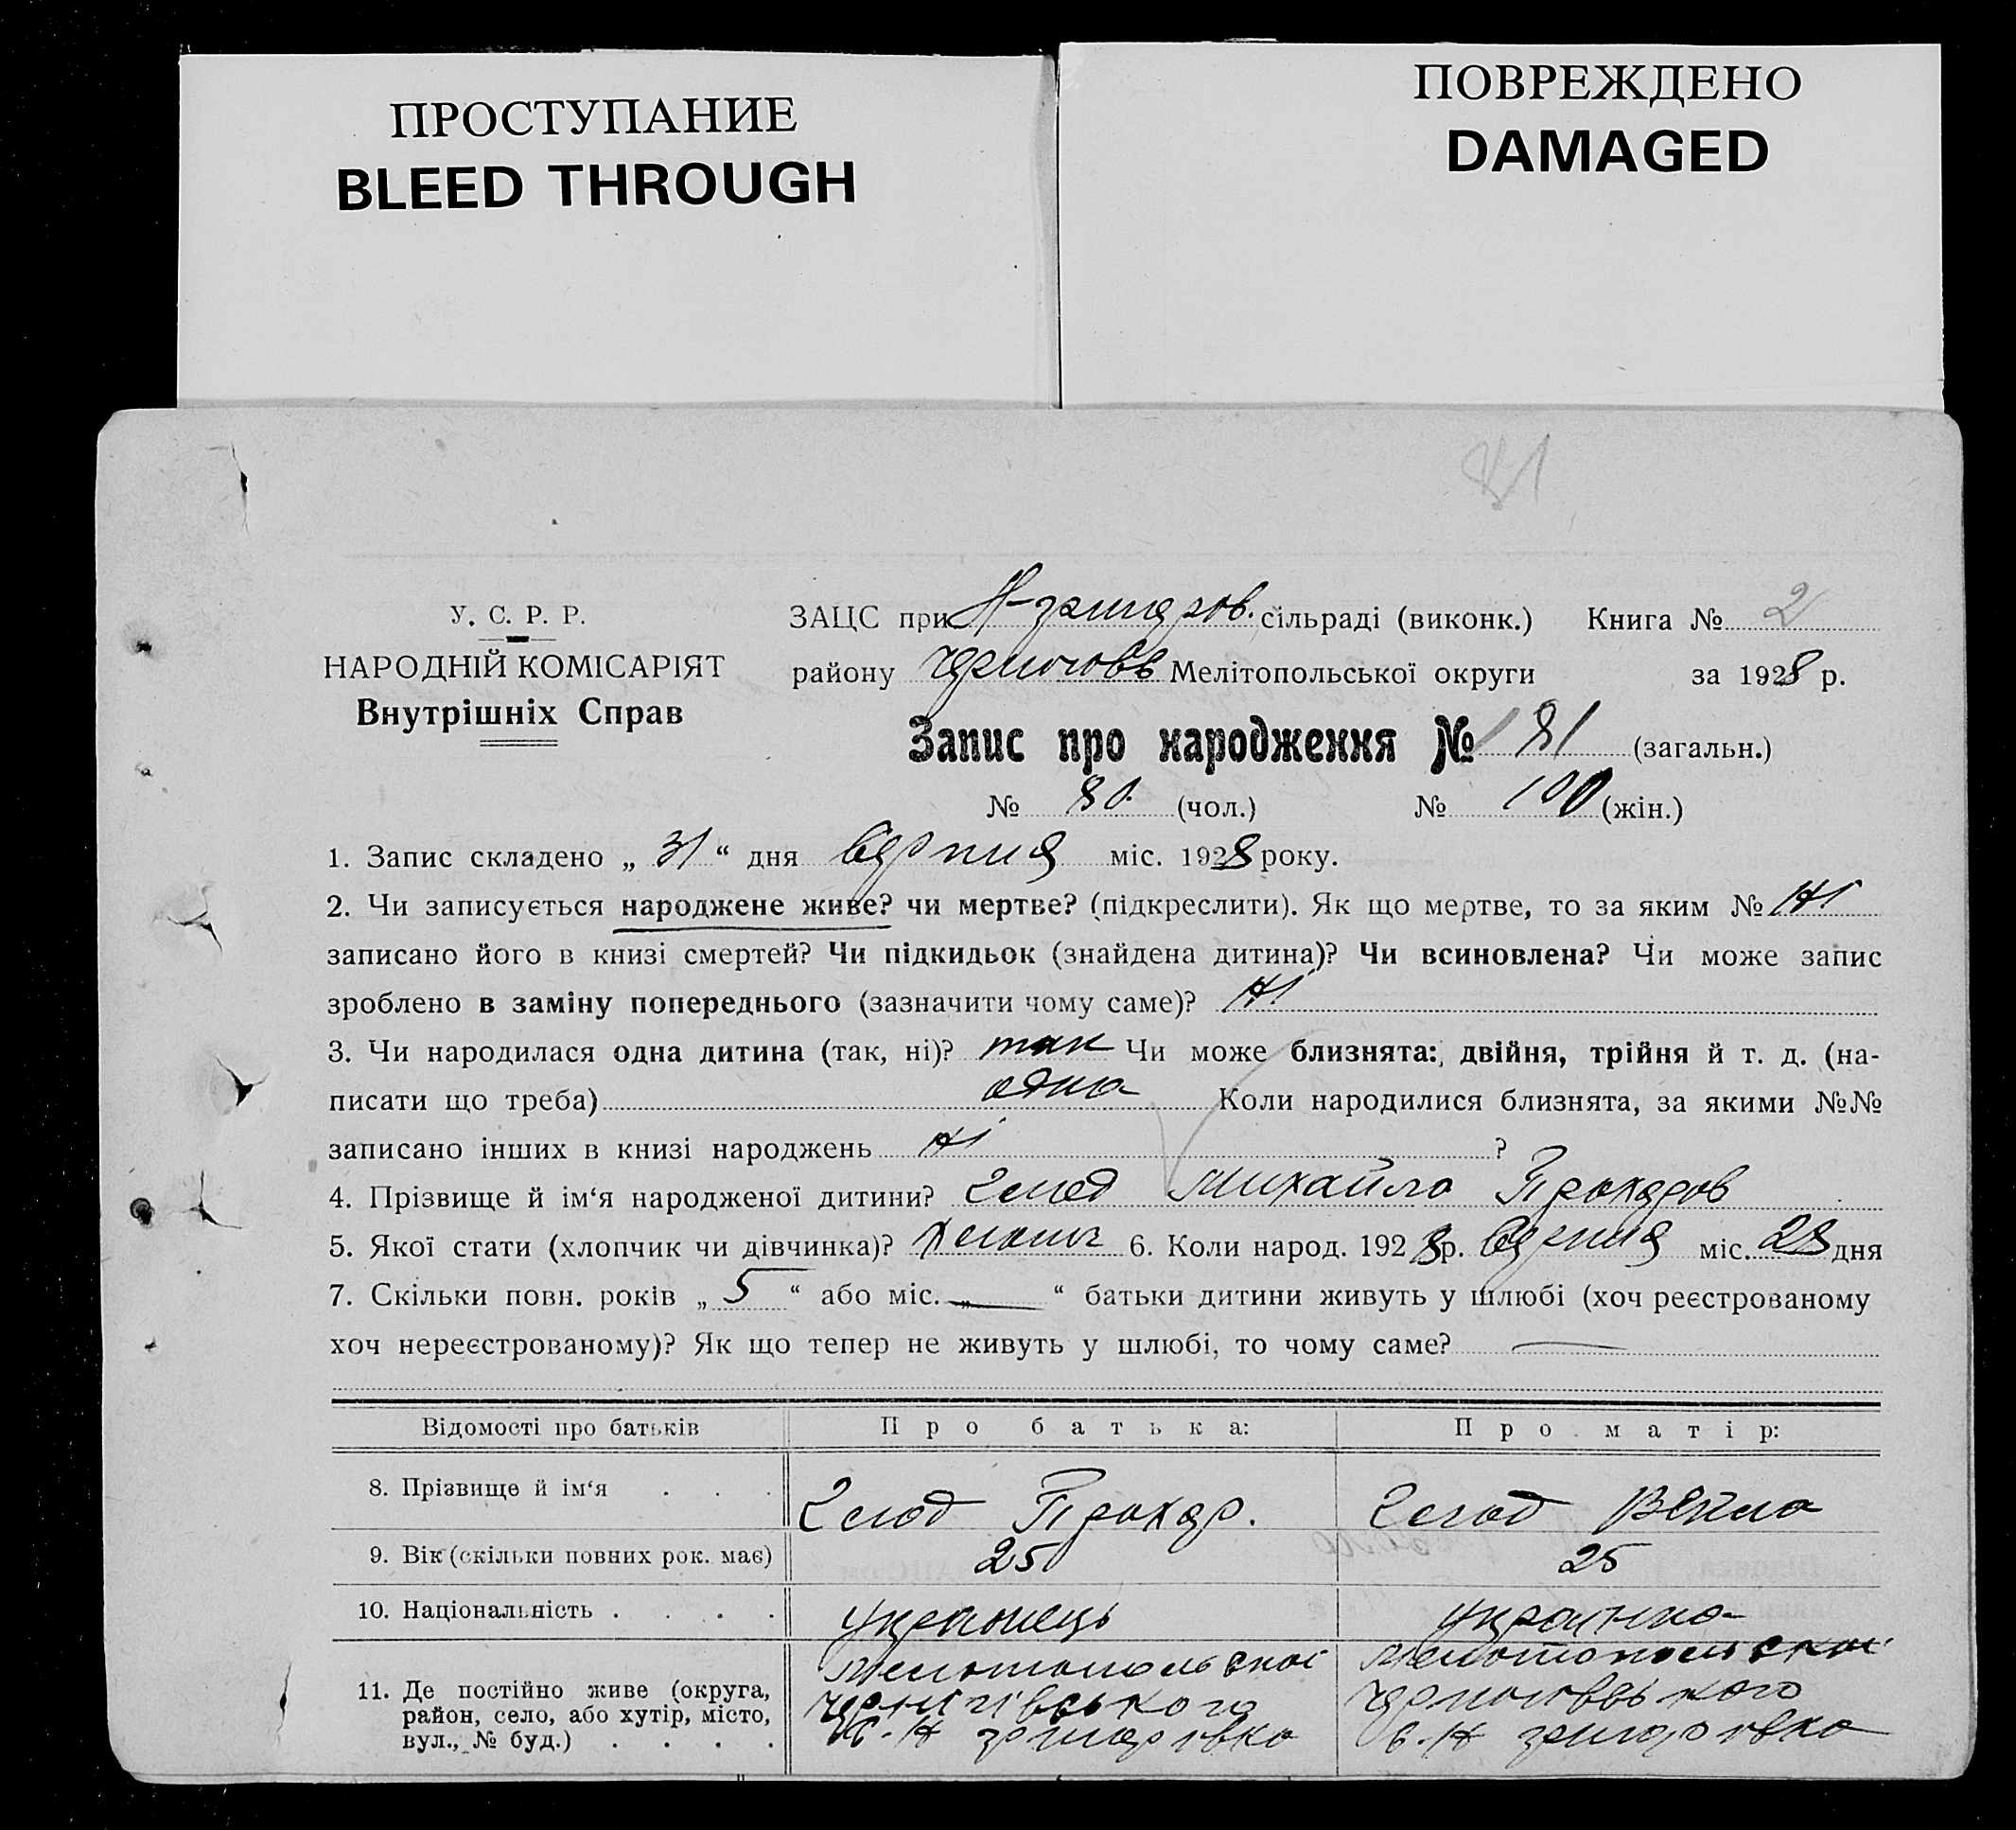 ПРОСТУПАНИЕ
BLEED THROUGH
ПОВРЕЖДЕНО
DAMAGED
81
У. С. Р. Р.
НАРОДНІЙ КОМІСАРІЯТ
Внутрішніх Справ
ЗАЦС при сільраді (виконк.) Книга № 2
району Мелітопольської округи за 1928 р.
Запис про народження № 181 (загальн.)
№ 81 (чол.) № 100 (жін.)
1. Запис складено „ 31 “ дня серпня міс. 1928 року.
2. Чи записується народжене живе? чи мертве? (підкреслити). Як що мертве, то за яким № ні
записано його в книзі смертей? Чи підкидьок (знайдена дитина)? Чи всиновлена? Чи може запис
зроблено в заміну попереднього (зазначити чому саме)? ні
3. Чи народилася одна дитина (так, ні)? так Чи може близнята: двійня, трійня й т. д. (на-
писати що треба) одна Коли народилися близнята, за якими №№
записано інших в книзі народжень ні ?
4. Прізвище й ім‘я народженої дитини? Михайло Прохоров
5. Якої стати (хлопчик чи дівчинка)? 6. Коли народ. 1928 р. серпня міс. 28 дня
7. Скільки повн. років „ 5 “ або міс. „ — “ батьки дитини живуть у шлюбі (хоч реєстрованому
хоч нереєстрованому)? Як що тепер не живуть у шлюбі, то чому саме? —
Відомості про батьків Про батька: Про матір:
8. Прізвище й ім‘я . . . Прохор.
9. Вік (скільки повних рок. має) 25 25
10. Національність . . . . Українець Українка
11. Де постійно живе (округа, Мелітопольської Мелітопольської
район, село, або хутір, місто, Чернігівського Чернігівського
вул., № буд.) . . . . с. Н григорівка с. Н григорівка